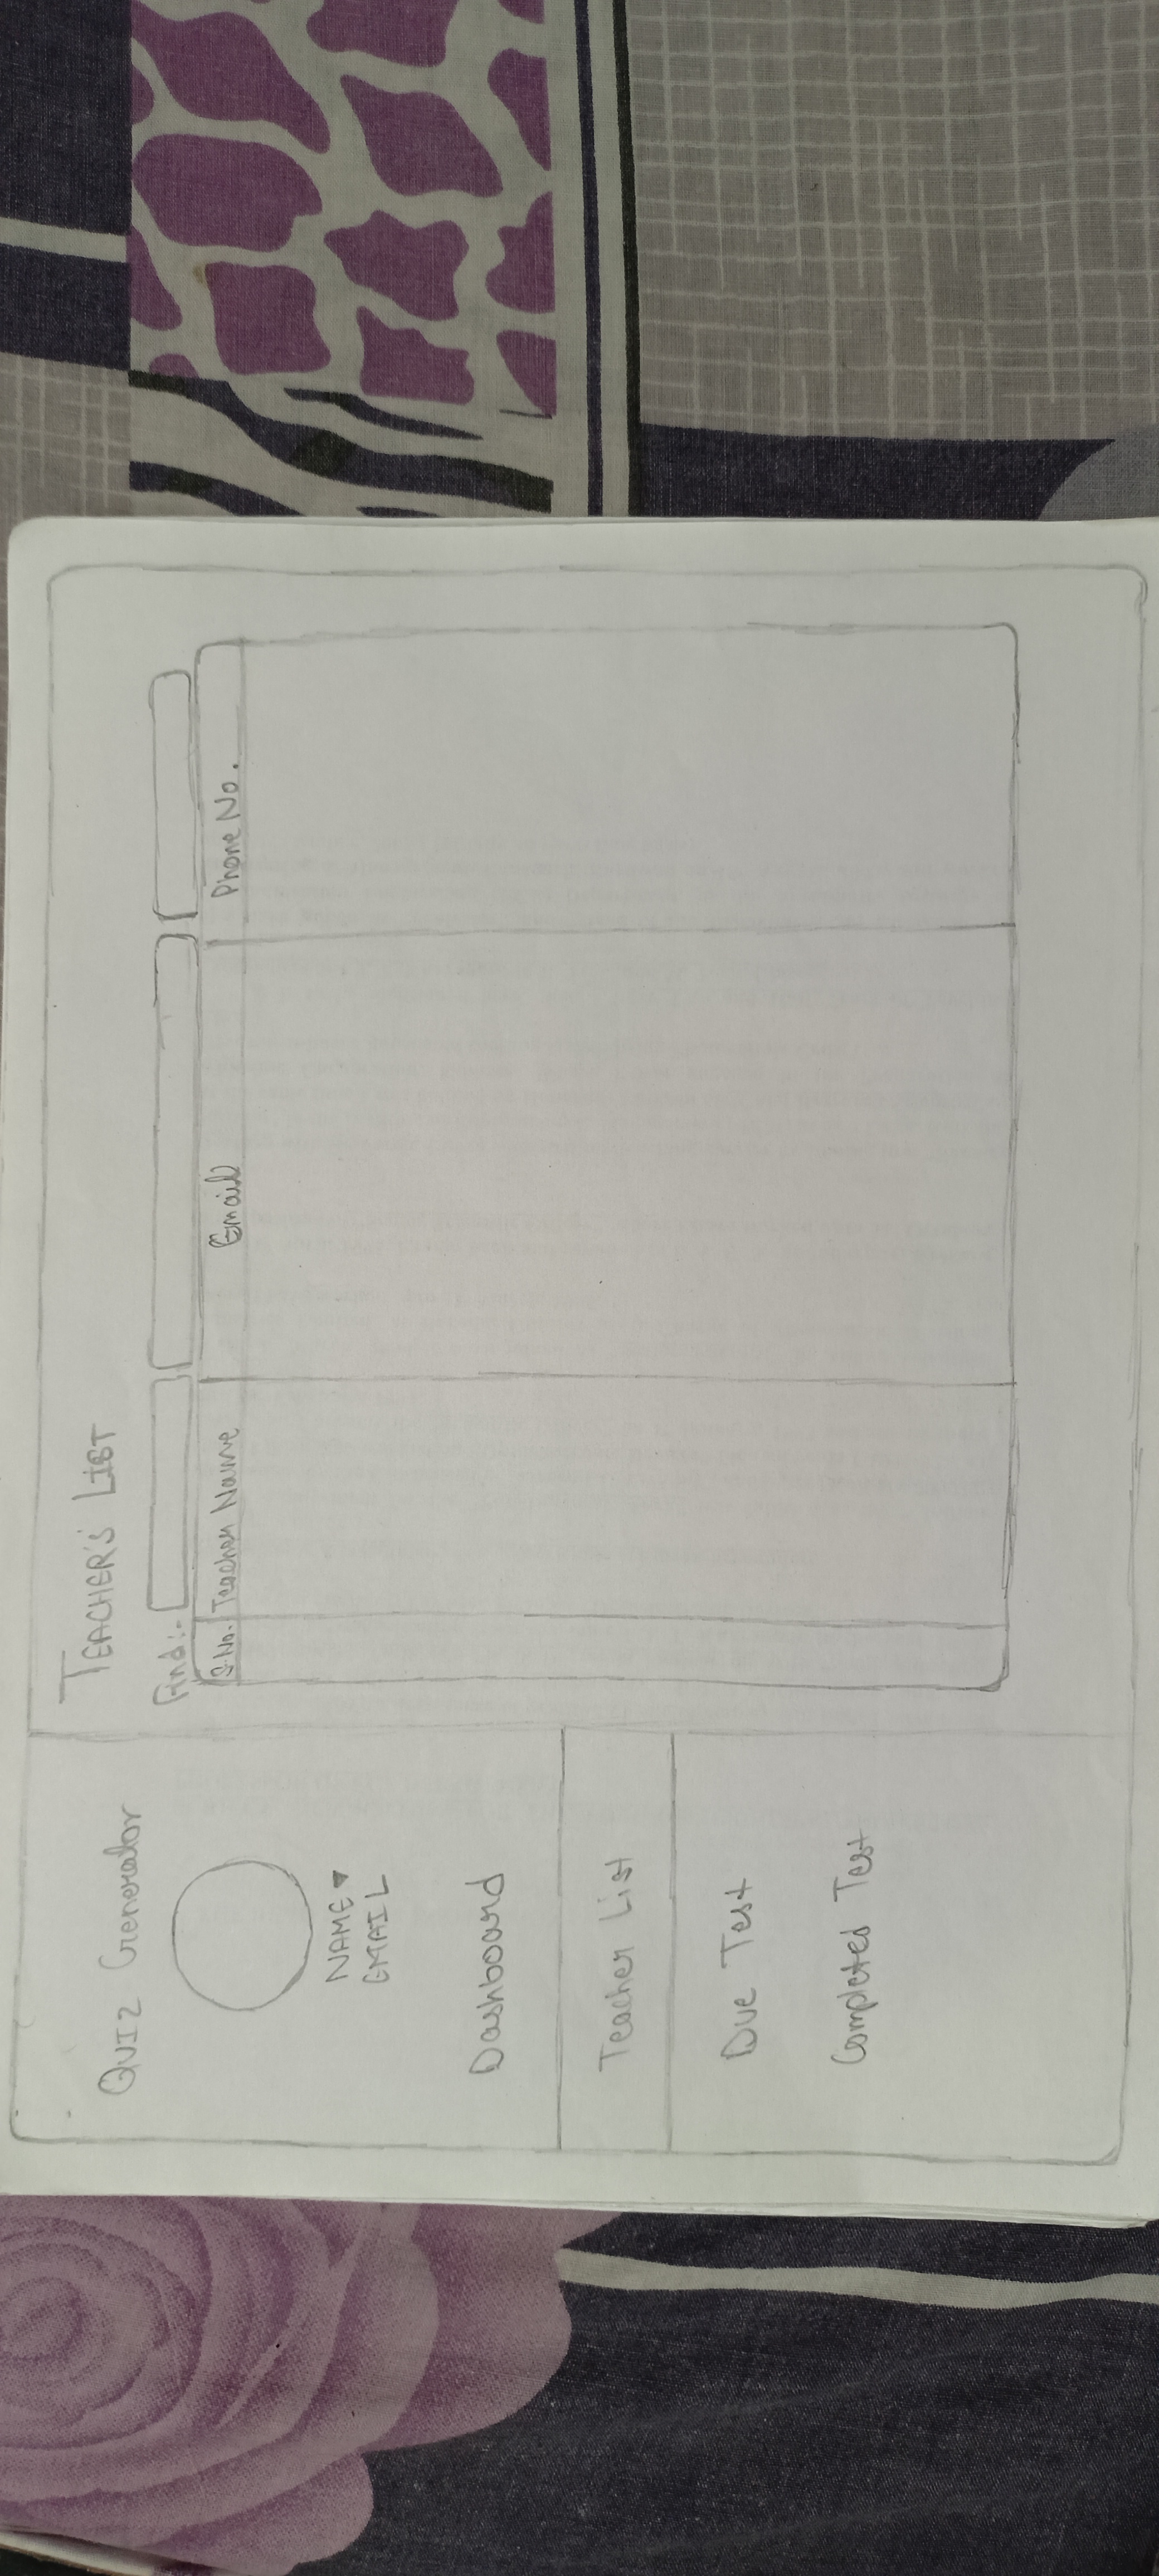 QUIZ Generator
NAME ▾
GMAIL
Dashboard
Teacher List
Due Test
Completed Test
TEACHER'S LIST
Find:-
S.No. Teacher Name Gmail Phone No.